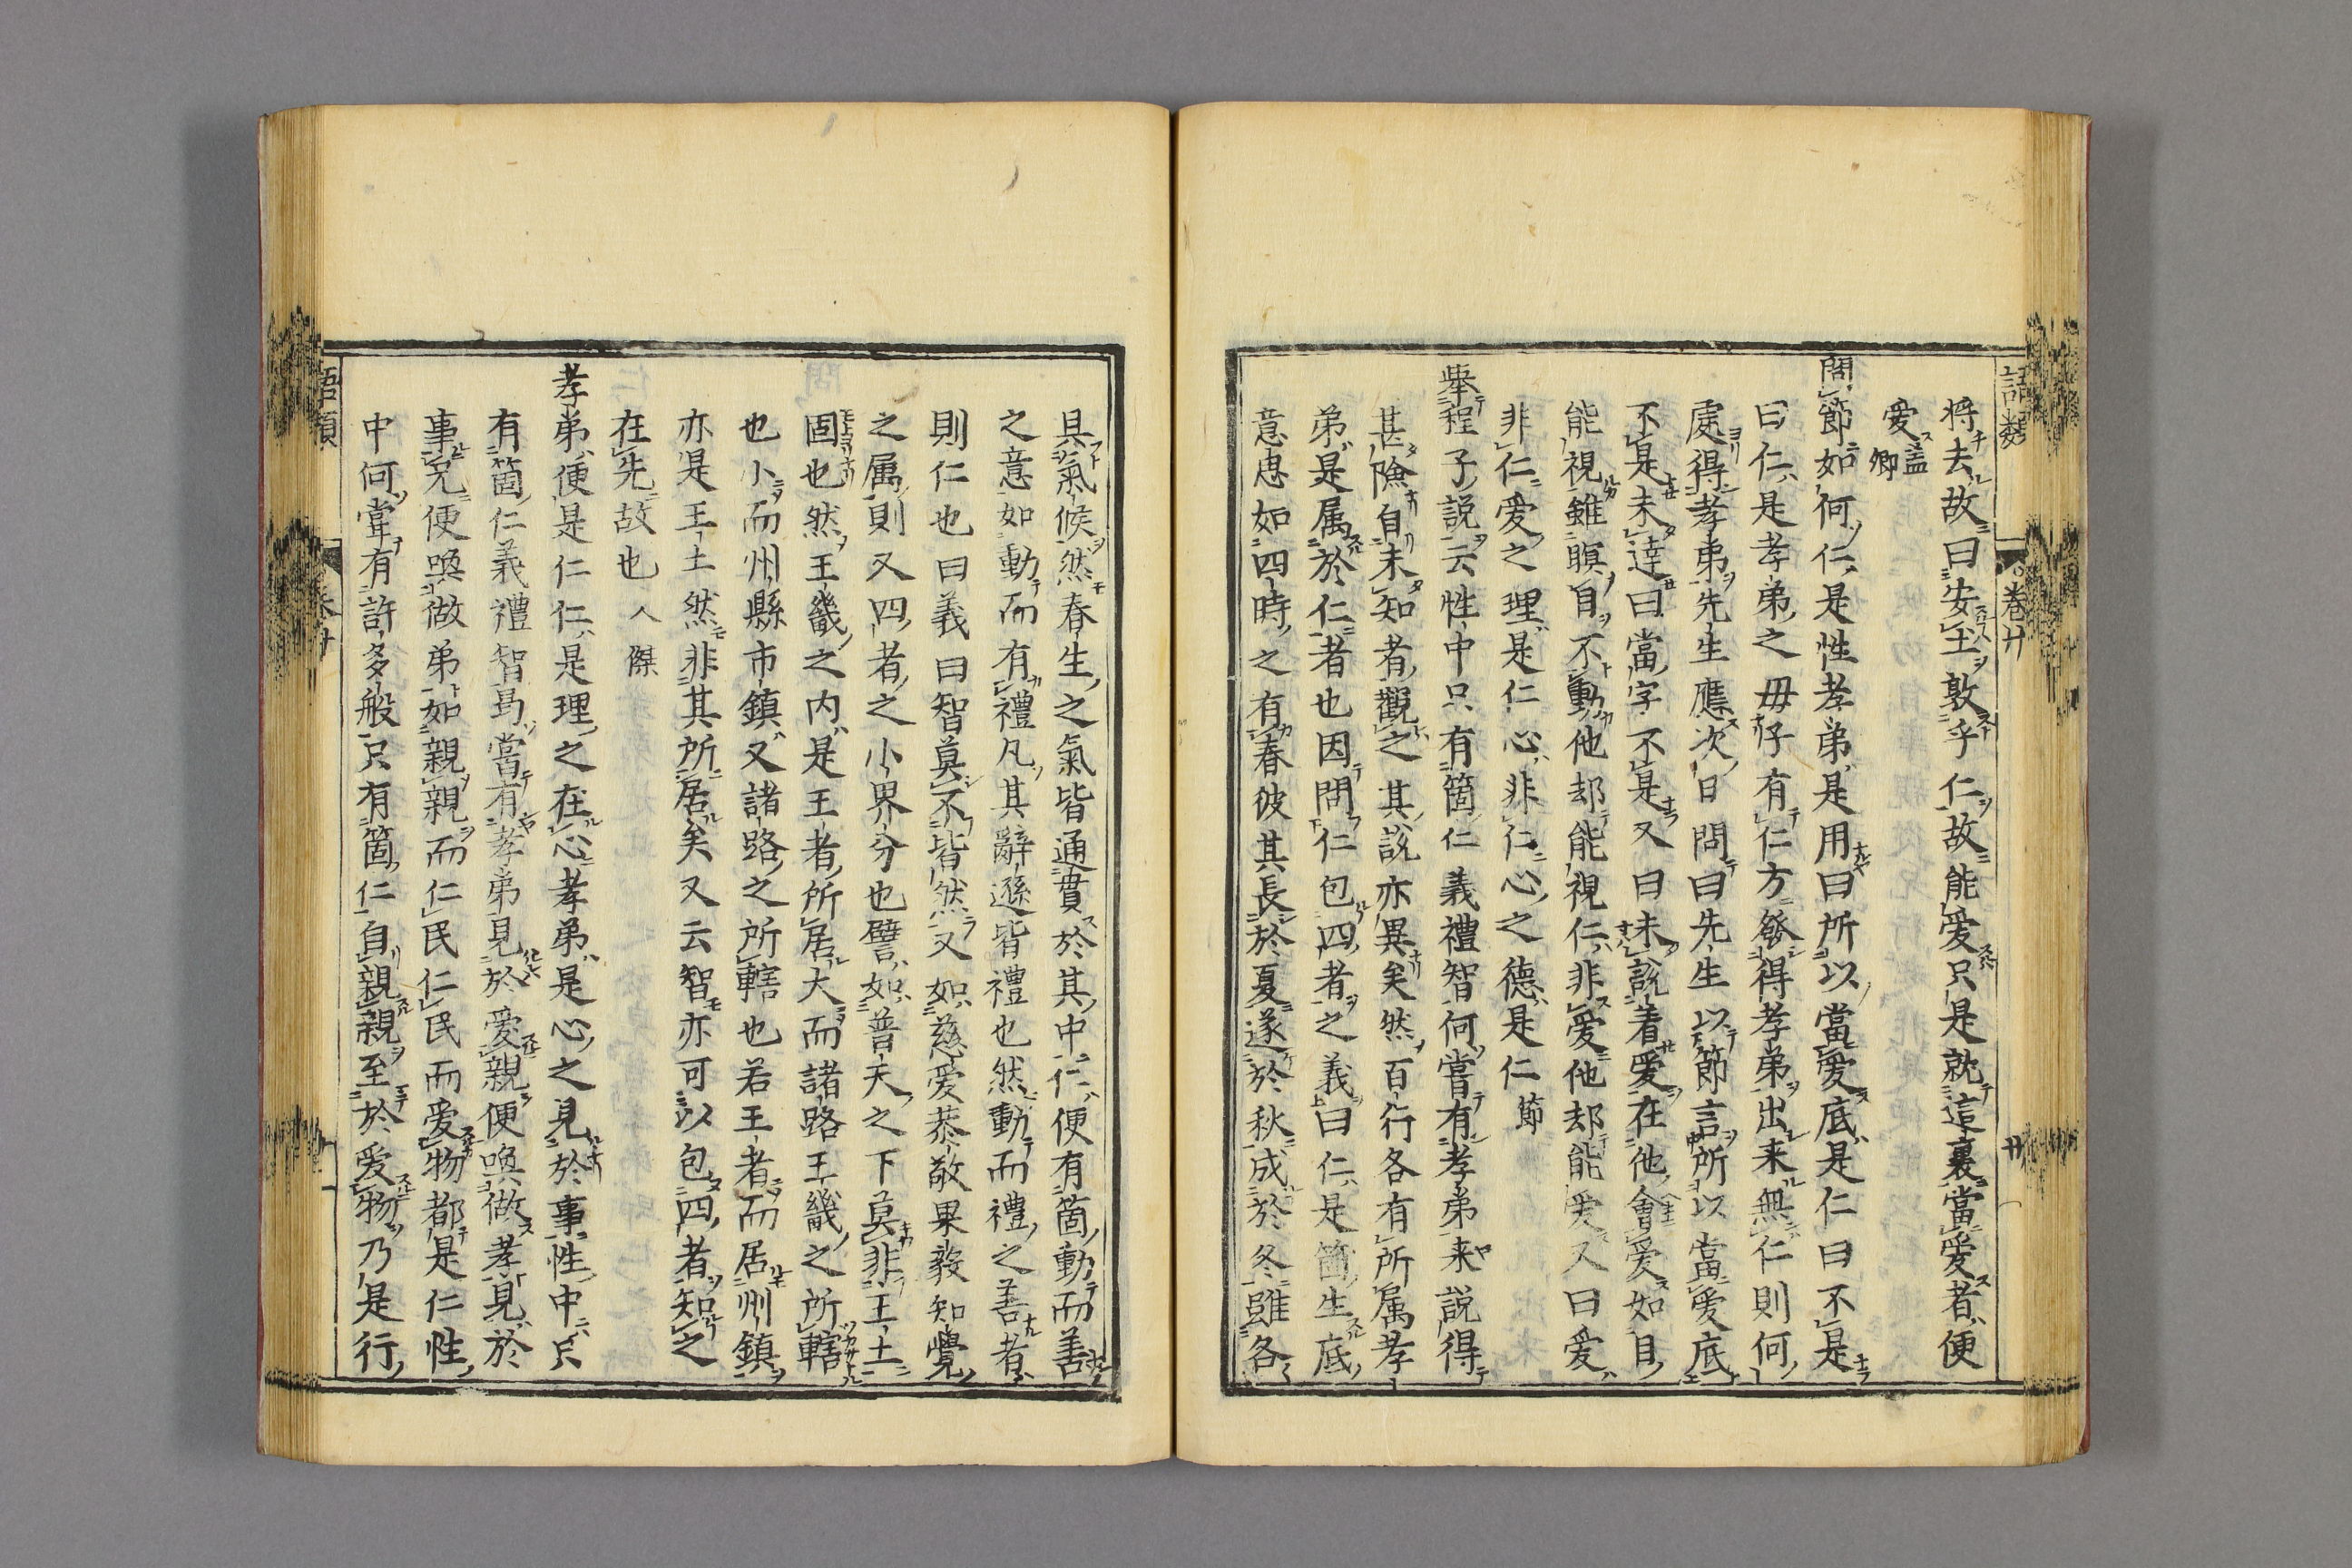 語類
卷廿
廿
將去故曰安土敦乎仁故能愛只是就這裏當愛者便
愛蓋卿
問節如何仁是性孝弟是用曰所以當愛底是仁曰不是
曰仁是孝弟之母仔有仁方發得孝弟出来無仁則何
處得孝弟先生應次日問曰先生以節言所以當愛底
不是未達曰當字不是又曰未說着愛在他會愛如目
能視雖瞑目不動他却能視仁非愛他却能愛又曰愛
非仁愛之理是仁心非仁心之德是仁節
舉程子說云性中只有箇仁義禮智何嘗有孝弟来說得
甚險自未知者觀之其說亦異矣然百行各有所属孝
弟是属於仁者也因問仁包四者之義曰仁是箇生底
意思如四時之有春彼其長於夏遂於秋成於冬雖各
具氣候然春生之氣皆通貫於其中仁便有箇動而善
之意如動而有禮凡其辭遜皆禮也然動而禮之善者
則仁也曰義曰智莫不皆然又如慈愛恭敬果毅知覺
之属則又四者之小界分也譬如普天之下莫非王土
固也然王畿之内是王者所居大而諸路王畿之所轄
也小而州縣市鎮又諸路之所轄也若王者而居州鎮
亦是王土然非其所居矣又云智亦可以包四者知之
在先故也人傑
孝弟便是仁仁是理之在心孝弟是心之見於事性中只
有箇仁義禮智曷當有孝弟見於愛親便喚做孝見於
事兄便喚做弟如親親而仁民仁民而愛物都是仁性
中何嘗有許多般只有箇仁自親親至於愛物乃是行
語類
卷廿